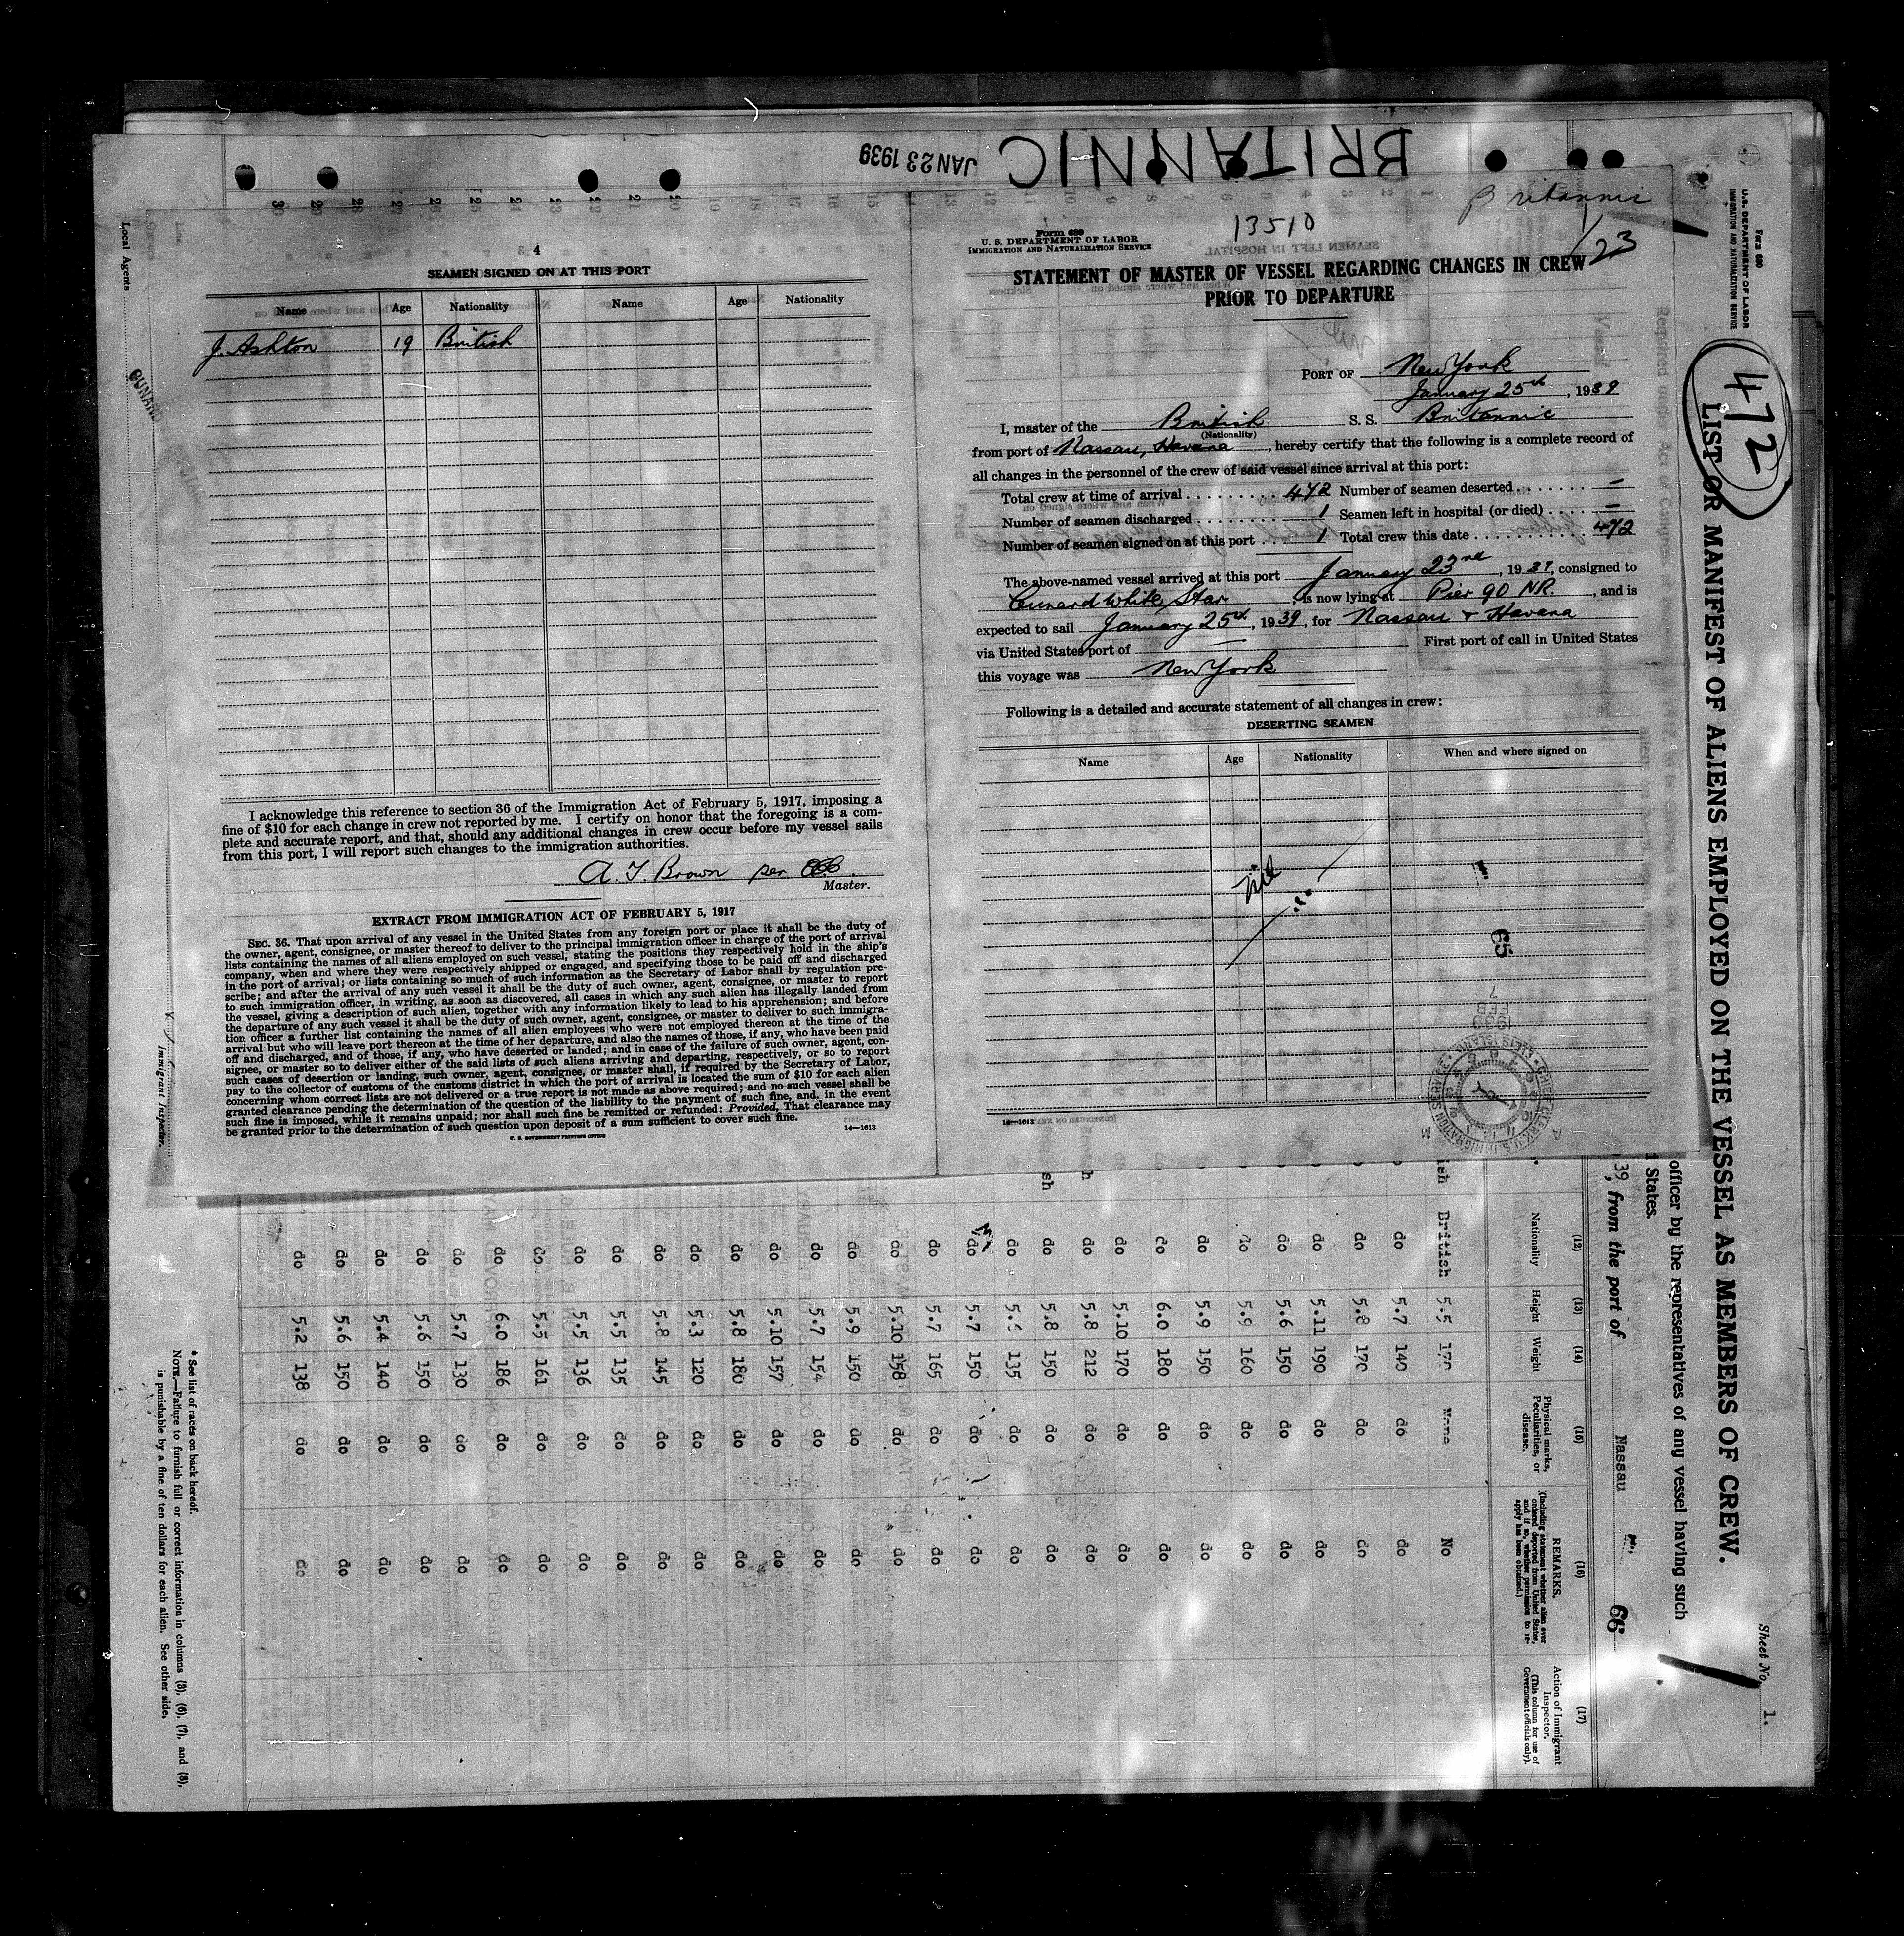 BRITANNIC
JAN 23 1939
Britannic
1/23
13510
4
SEAMEN SIGNED ON AT THIS PORT
Name Age Nationality Name Age Nationality
J. Ashton 19 British
I acknowledge this reference to section 36 of the Immigration Act of February 5, 1917, imposing a
fine of $10 for each change in crew not reported by me. I certify on honor that the foregoing is a com-
plete and accurate report, and that, should any additional changes in crew occur before my vessel sails
from this port, I will report such changes to the immigration authorities.
A. T. Brown per
Master.
EXTRACT FROM IMMIGRATION ACT OF FEBRUARY 5, 1917
SEC. 36. That upon arrival of any vessel in the United States from any foreign port or place it shall be the duty of
the owner, agent, consignee, or master thereof to deliver to the principal immigration officer in charge of the port of arrival
lists containing the names of all aliens employed on such vessel, stating the positions they respectively hold in the ship's
company, when and where they were respectively shipped or engaged, and specifying those to be paid off and discharged
in the port of arrival; or lists containing so much of such information as the Secretary of Labor shall by regulation pre-
scribe; and after the arrival of any such vessel it shall be the duty of such owner, agent, consignee, or master to report
to such immigration officer, in writing, as soon as discovered, all cases in which any such alien has illegally landed from
the vessel, giving a description of such alien, together with any information likely to lead to his apprehension; and before
the departure of any such vessel it shall be the duty of such owner, agent, consignee, or master to deliver to such immigra-
tion officer a further list containing the names of all alien employees who were not employed thereon at the time of the
arrival but who will leave port thereon at the time of her departure, and also the names of those, if any, who have been paid
off and discharged, and of those, if any, who have deserted or landed; and in case of the failure of such owner, agent, con-
signee, or master so to deliver either of the said lists of such aliens arriving and departing, respectively, or so to report
such cases of desertion or landing, such owner, agent, consignee, or master shall, if required by the Secretary of Labor,
pay to the collector of customs of the customs district in which the port of arrival is located the sum of $10 for each alien
concerning whom correct lists are not delivered or a true report is not made as above required; and no such vessel shall be
granted clearance pending the determination of the question of the liability to the payment of such fine, and, in the event
such fine is imposed, while it remains unpaid; nor shall such fine be remitted or refunded: Provided, That clearance may
be granted prior to the determination of such question upon deposit of a sum sufficient to cover such fine.
U. S. GOVERNMENT PRINTING OFFICE 14—1613
Form 680
U. S. DEPARTMENT OF LABOR
IMMIGRATION AND NATURALIZATION SERVICE
STATEMENT OF MASTER OF VESSEL REGARDING CHANGES IN CREW
PRIOR TO DEPARTURE
PORT OF New York
January 25th, 1939
I, master of the British S. S. Britannic
(Nationality)
from port of Nassau, Havana, hereby certify that the following is a complete record of
all changes in the personnel of the crew of said vessel since arrival at this port:
Total crew at time of arrival 472 Number of seamen deserted —
Number of seamen discharged 1 Seamen left in hospital (or died) —
Number of seamen signed on at this port 1 Total crew this date 472
The above-named vessel arrived at this port January 23rd, 1939, consigned to
Cunard White Star, is now lying at Pier 90 NR., and is
expected to sail January 25th, 1939, for Nassau & Havana
via United States port of — First port of call in United States
this voyage was New York
Following is a detailed and accurate statement of all changes in crew:
DESERTING SEAMEN
Name Age Nationality When and where signed on
Nil
65
1939 FEB 7
CHIEF CLERK, U.S. IMMIGRATION SERVICE ELLIS ISLAND
14—1613
Form 680
U. S. DEPARTMENT OF LABOR
IMMIGRATION AND NATURALIZATION SERVICE
472
LIST OR MANIFEST OF ALIENS EMPLOYED ON THE VESSEL AS MEMBERS OF CREW.
Sheet No. 1.
officer by the representatives of any vessel having such
States.
39, from the port of Nassau
66
(12) (13) (14) (15) (16) (17)
Nationality Height Weight Physical marks, Peculiarities, or disease. REMARKS. (Including statement whether alien ever ordered deported from United States, and if so, whether permission to re-apply has been obtained.) Action of Immigrant Inspector. (This column for use of Government officials only).
British 5.5 170 None No
do 5.7 140 do do
do 5.8 170 do do
do 5.11 190 do do
do 5.6 150 do do
do 5.9 160 do do
do 5.9 150 do do
do 6.0 180 do do
do 5.10 170 do do
do 5.8 212 do do
do 5.8 150 do do
do 135 do do
do 5.7 150 do do
do 5.7 165 do do
do 5.10 158 do do
do 5.9 150 do do
do 5.7 154 do do
do 5.10 157 do do
do 5.8 180 do do
do 5.3 120 do do
do 5.8 145 do do
do 5.5 135 do do
do 5.5 136 do do
do 5.5 161 do do
do 6.0 186 do do
do 5.7 130 do do
do 5.6 150 do do
do 5.4 140 do do
do 5.6 150 do do
do 5.2 138 do do
* See list of races on back hereof.
NOTE.—Failure to furnish full or correct information in columns (3), (6), (7), and (8),
is punishable by a fine of ten dollars for each alien. See other side.
Local Agents
CUNARD
Immigrant Inspector.